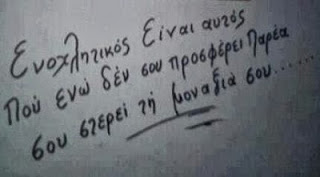 Ενοχλητικός είναι αυτός
Πού ενώ δέν σου προσφέρει Παρέα
σου στερεί τή μοναξιά σου......